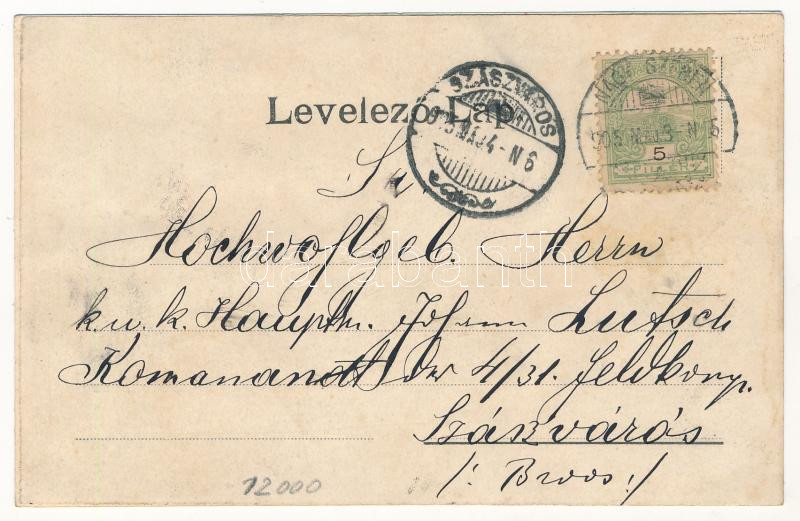 Levelező Lap
SZÁSZVÁROS
905 MÁJ 4 - N 6
NAGY-SZEBEN
905 MÁJ 3 - N 6
5
FILLÉR
Sr.
Hochwohlgeb. Herrn
k. u. k. Hauptm. Johann Lutsch
Komanandt der 4/31. Feldkomp.
Szászváros
/: Broos :/
darabanth
12000